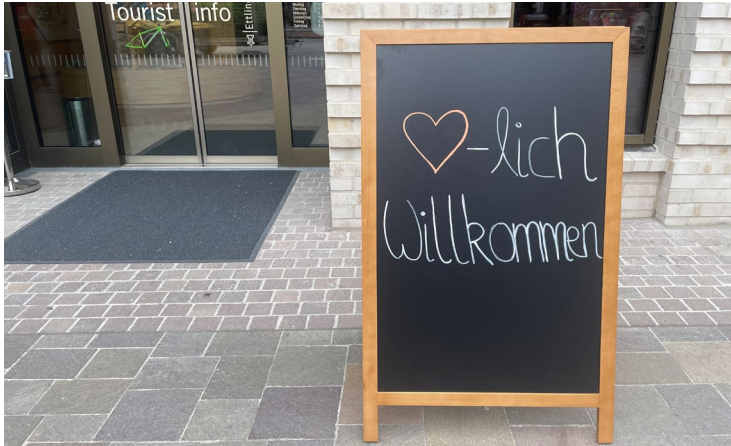 Tourist info
Ettlin
♡-lich
Willkommen